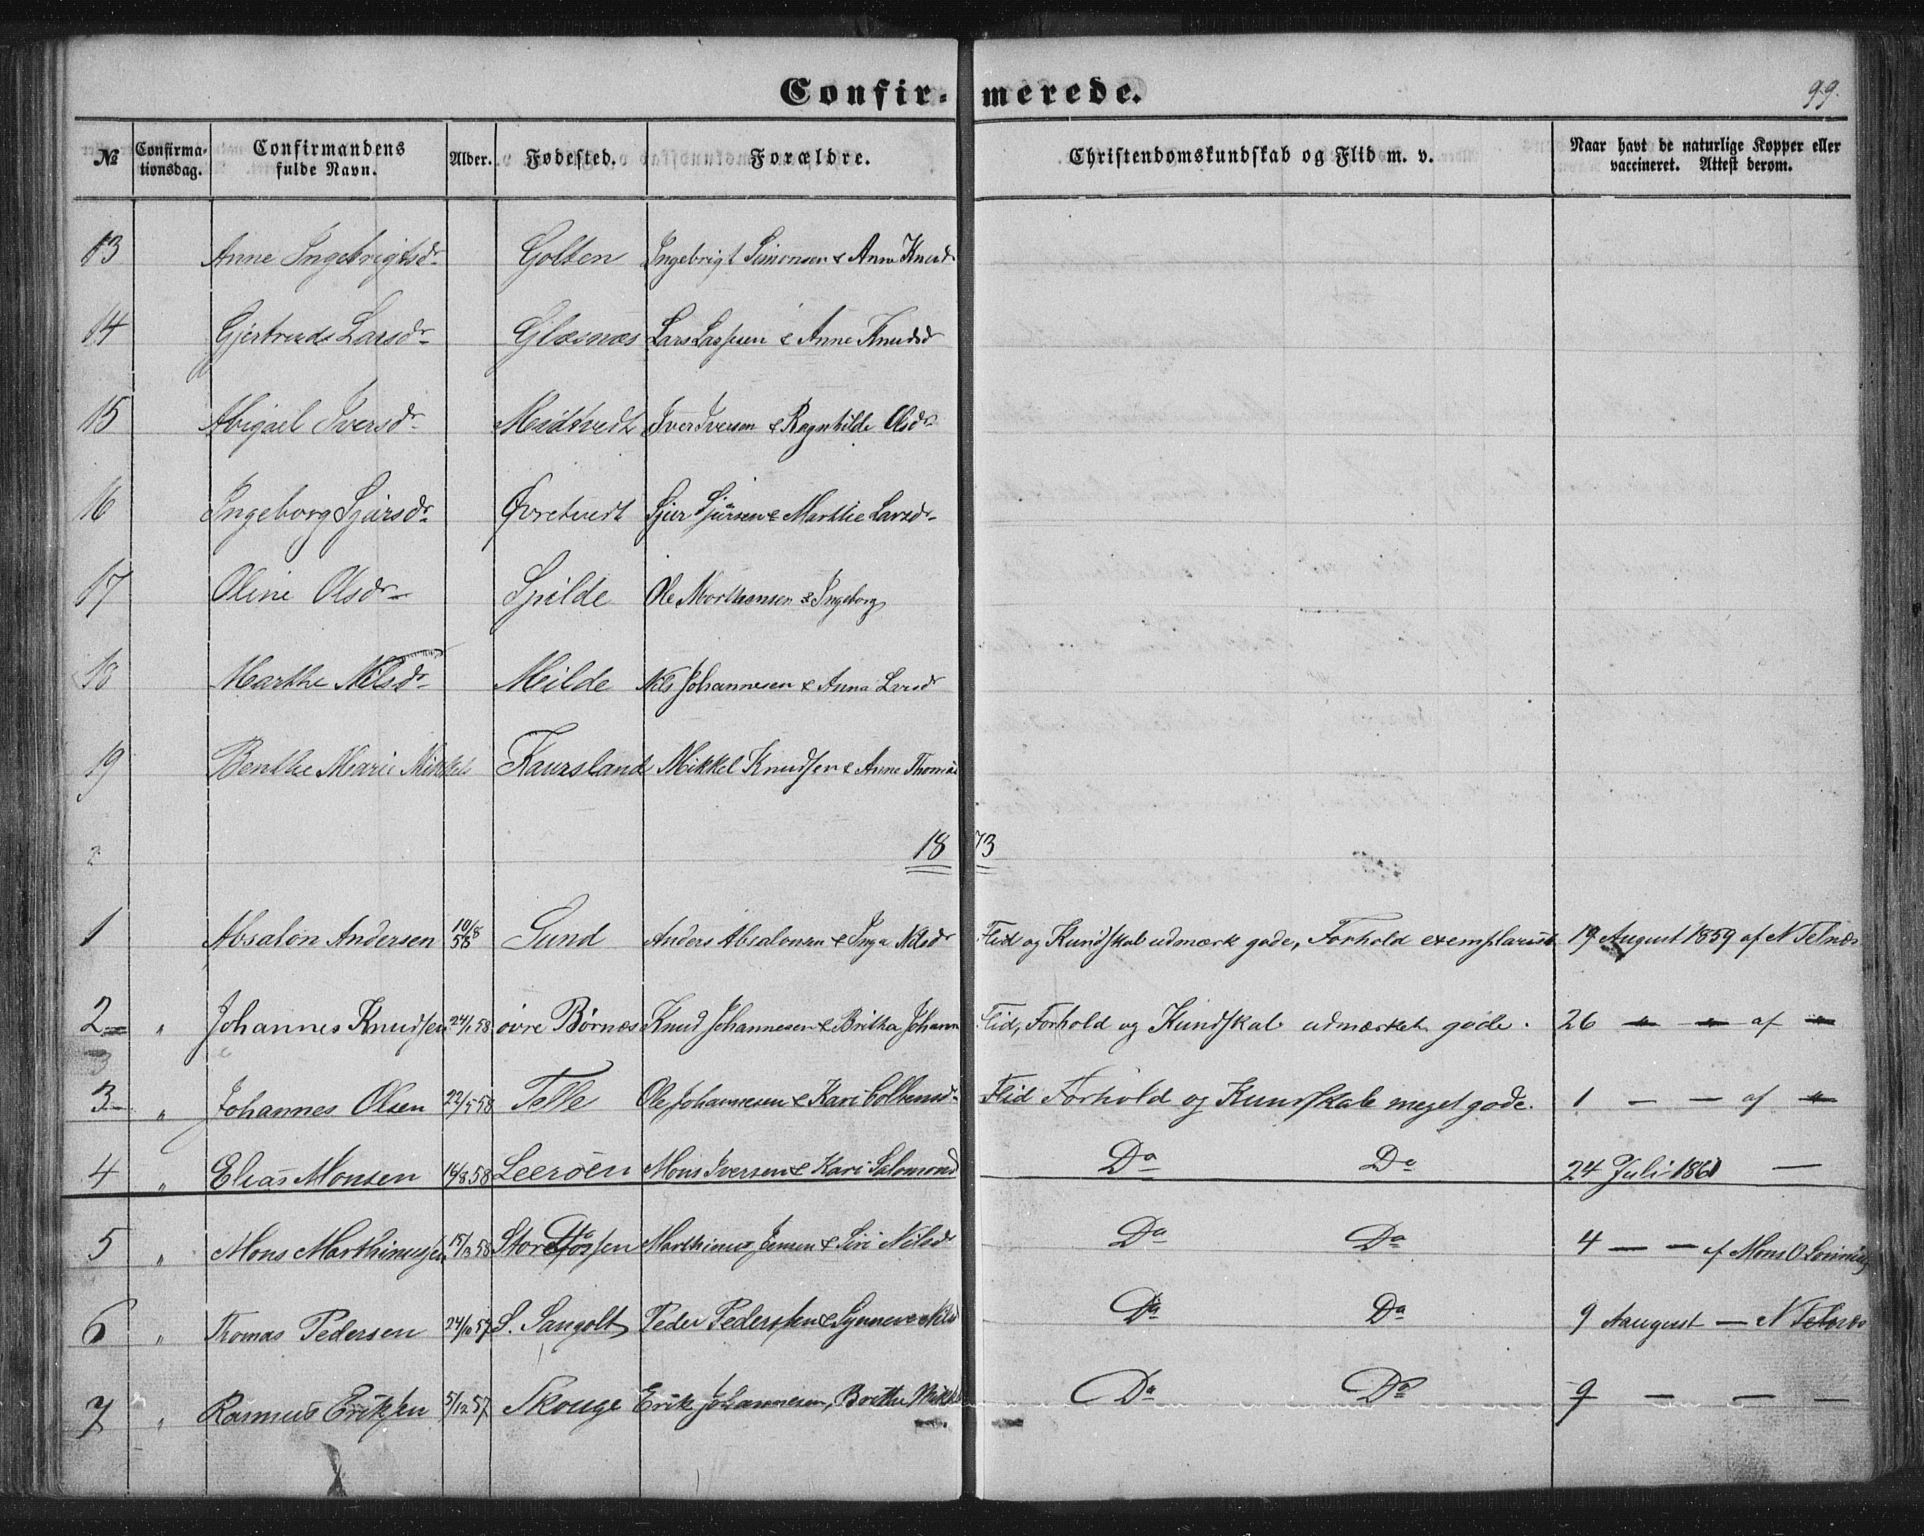 Confir- merede. 99.
№ Confirma- tionsdag. Confirmandens fulde Navn. Alder. Fødested. Forældre. Christendomskundskab og Flid m. v. Naar havt de naturlige Kopper eller vaccineret. Attest derom.
13 Anne Ingebrigtsdr Golten Ingebrigt Simonsen & Anne Knudsd
14 Gjertrude Larsdr Glæsnæs Lars Larssen & Anne Knudsd
15 Abigael Iversdr Midtvedt Iver Iversen & Ragnhilde Olsdr
16 Ingeborg Sjursdr Øvretvedt Sjur Sjursen & Marthe Larsdr
17 Oline Olsdr Spilde Ole Morthensen & Ingeborg
18 Marthe Nilsdr Milde Nils Johannesen & Anna Larsdr
19 Benthe Marie Mikkels Kaursland Mikkel Knudsen & Anne Thomas
1873
1 Absalon Andersen 10/8 58 Sund Anders Absalonsen & Inga Nilsdr Flid og Kundskab udmærk gode, Forhold exemplarisk 19 August 1859 af N Telnæs
2 " Johannes Knudsen 24/1 58 övre Børnæs Knud Johannesen & Britha Johann Flid, Forhold og Kundskab udmærket gode. 26 " " af "
3 " Johannes Olsen 22/5 58 Telle Ole Johannesen & Kari Coltensdr Flid Forhold og Kundskab meget gode. 1 — — af "
4 " Elias Monsen 14/8 58 Leeröen Mons Iversen & Kari Salomond Do Do 24 Juli 1861 —
5 " Mons Marthinussen 15/3 58 Store Marthinus Jensen & Siri Nilsd Do Do 4 — — af Mons O
6 " Thomas Pedersen 24/10 57 S. Sangolt Peder Pedersen & Synneve Nilsd Do Do 9 Aaugust — N Telnæs
7 " Rasmus Eriksen 5/12 57 Skouge Erik Johannesen, Brithe Mikkels Do Do 9 — — —